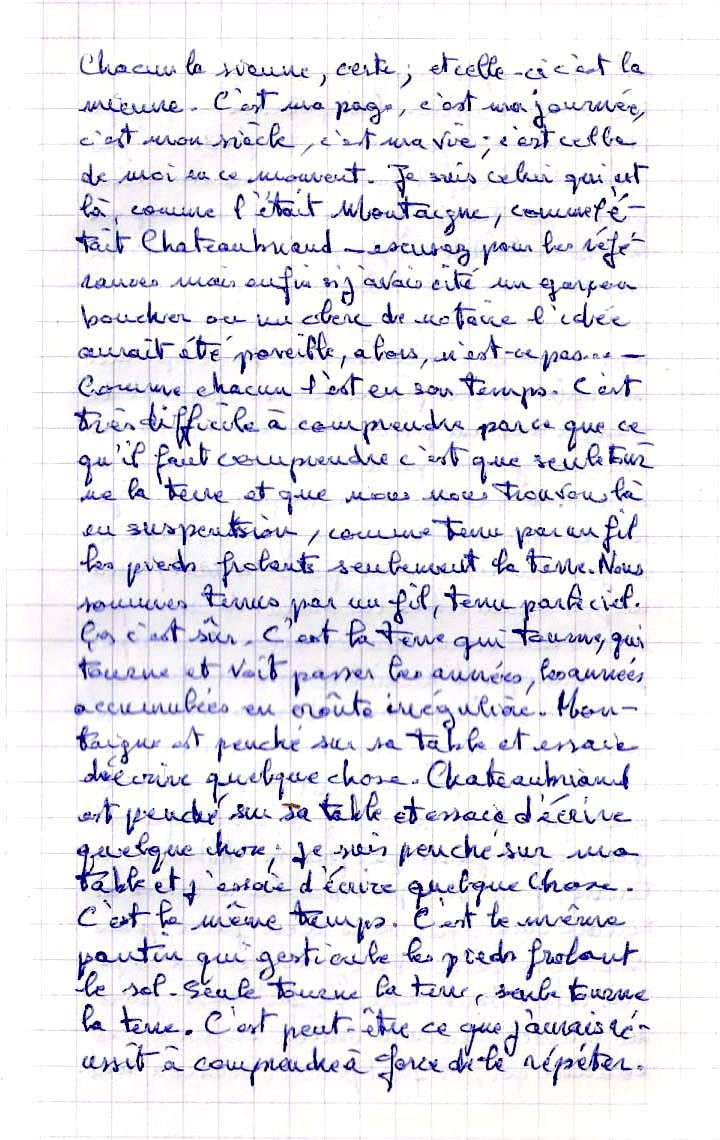 Chacun la sienne, certe; et celle-ci c'est la
mienne. C'est ma page, c'est ma journée,
c'est mon siècle, c'est ma vie; c'est celle
de moi en ce moment. Je suis celui qui est
là, comme l'était Montaigne, comme l'é-
tait Chateaubriand – excusez pour les réfé-
rences mais enfin si j'avais cité un garçon
boucher ou un clerc de notaire l'idée
aurait été pareille, alors, n'est-ce pas... –
Comme chacun l'est en son temps. C'est
très difficile à comprendre parce que ce
qu'il faut comprendre c'est que seule tour
ne la terre et que nous nous trouvons là
en suspension, comme tenu par un fil
les pieds frolants seulement la terre. Nous
sommes tenus par un fil, tenu par le ciel.
Ça c'est sûr. C'est la terre qui tourne, qui
tourne et voit passer les années, les années
accumulées en croûte irrégulière. Mon-
taigne est penché sur sa table et essaie
d'écrire quelque chose. Chateaubriand
est penché sur sa table et essaie d'écrire
quelque chose; je suis penché sur ma
table et j'essaie d'écrire quelque chose.
C'est le même temps. C'est le même
pantin qui gesticule les pieds frolant
le sol. Seule tourne la terre, seule tourne
la terre. C'est peut-être ce que j'aurais ré-
ussit à comprendre à force de le répéter.